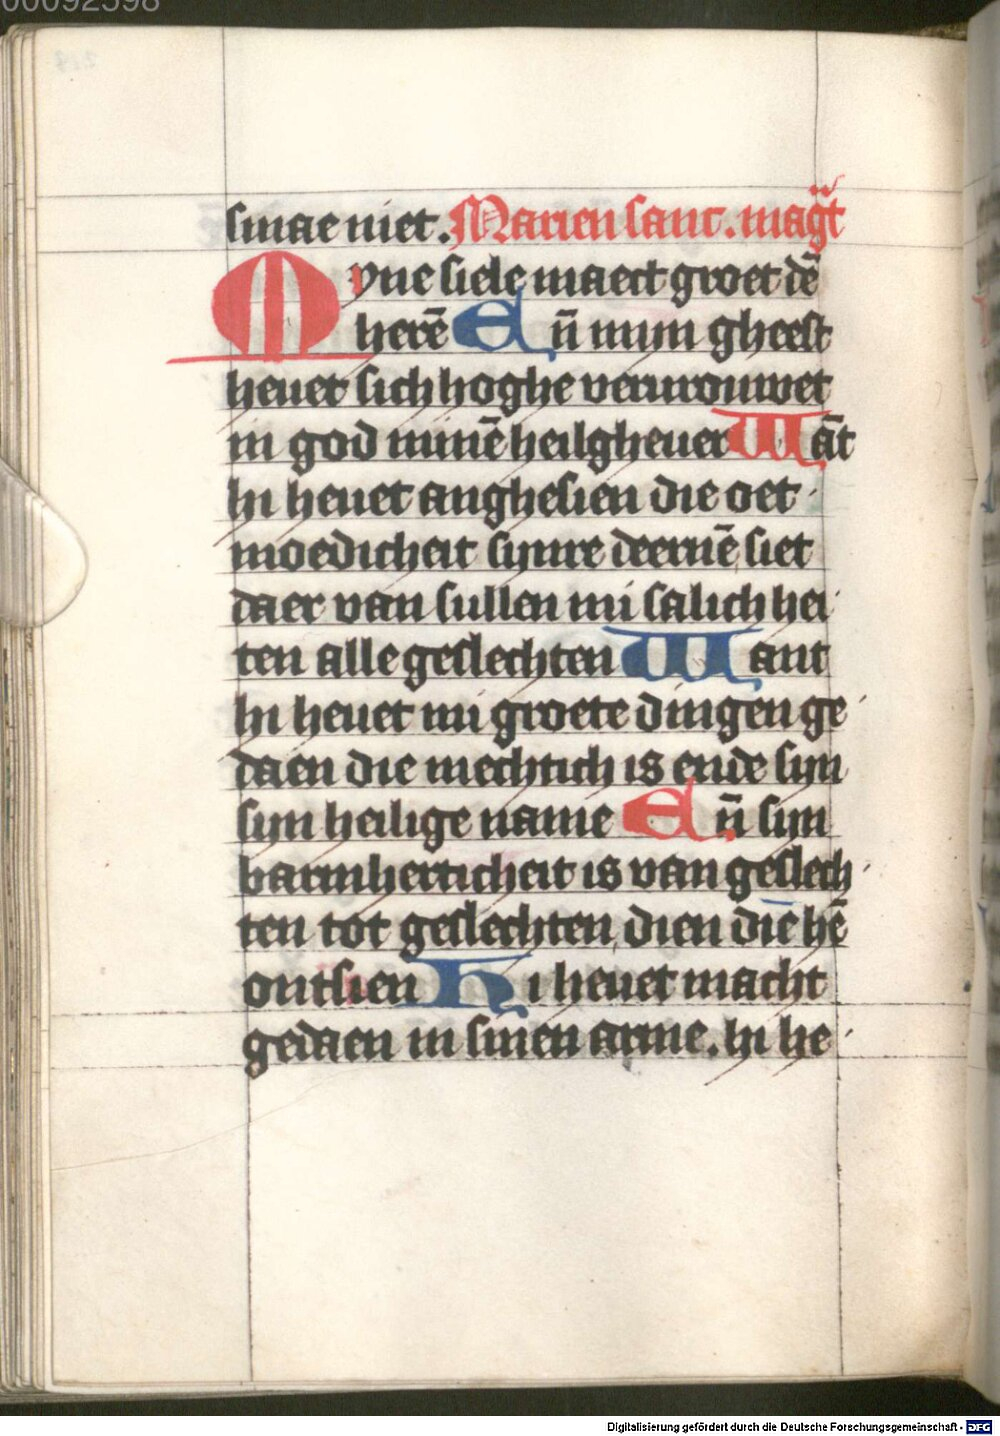 00092598
smae niet. Marien sanc. mag̃t
Myne siele maect groet dē
herē Eñ mijn gheest
heuet sich hoghe verurouwet
in god minē heilgheuer Wāt
hi heuet anghesien die oet
moedicheit synre deernē siet
daer van sullen mi salich hei
ten alle geslechten Want
hi heuet mi groete dingen ge
daen die mechtich is ende sijn
sijn heilige name Eñ sijn
barmherticheit is van geslech
ten tot geslechten dien die hē
ontsien Hi heuet macht
gedaen in sinen arme. hi he
Digitalisierung gefördert durch die Deutsche Forschungsgemeinschaft - DFG